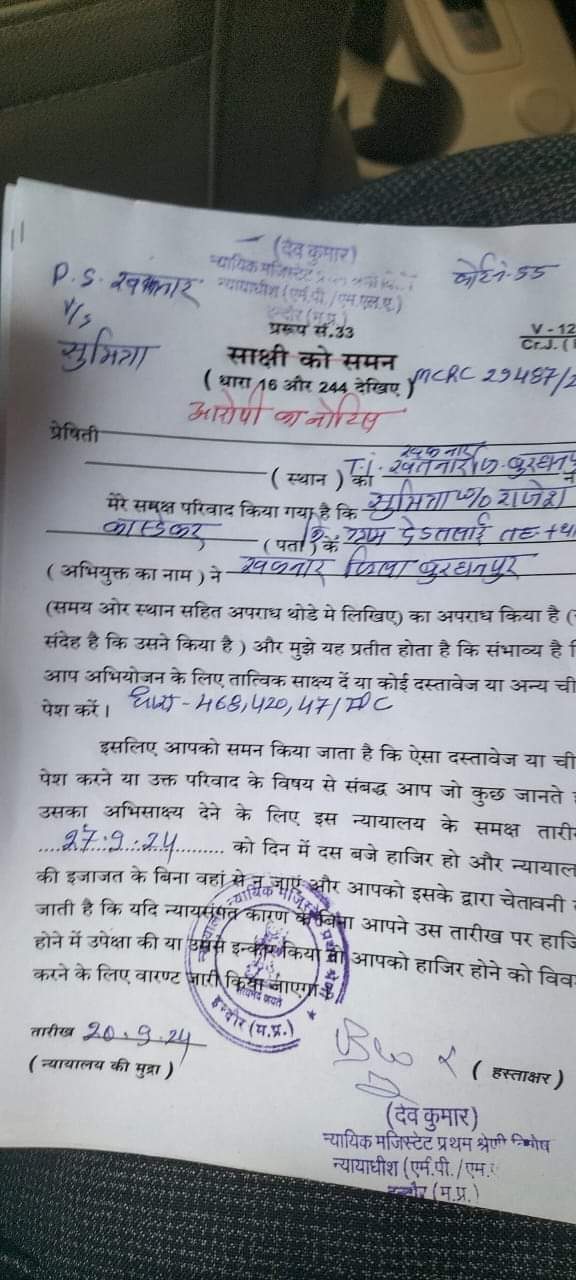 (देव कुमार)
न्यायिक मजिस्टेट प्रथम
न्यायाधीश (एम.पी./एम.एल.ए.)
इन्दौर (म.प्र.)
कोर्ट नं-55
P.S. खकनार
V/s
सुमित्रा
प्ररूप सं.33
V-12
Cr.J.
साक्षी को समन
(धारा 16 और 244 देखिए)
MCRC 29487/2
आरोपी का नोटिस
प्रेषिती
खकनार
(स्थान) को T.I. खकनार जि. बुरहानपुर
मेरे समक्ष परिवाद किया गया है कि सुमित्रा w/o राजेश
कास्डेकर (पता) के ग्राम देडतलाई तह +था
(अभियुक्त का नाम) ने खकनार जिला बुरहानपुर
(समय ओर स्थान सहित अपराध थोडे मे लिखिए) का अपराध किया है (
संदेह है कि उसने किया है) और मुझे यह प्रतीत होता है कि संभाव्य है
आप अभियोजन के लिए तात्विक साक्ष्य दें या कोई दस्तावेज या अन्य ची
पेश करें। धारा - 468, 420, 471 IPC
इसलिए आपको समन किया जाता है कि ऐसा दस्तावेज या ची
पेश करने या उक्त परिवाद के विषय से संबद्ध आप जो कुछ जानते
उसका अभिसाक्ष्य देने के लिए इस न्यायालय के समक्ष तारी
....27.9.24.......... को दिन में दस बजे हाजिर हो और न्यायाल
की इजाजत के बिना वहां से न जाएं और आपको इसके द्वारा चेतावनी
जाती है कि यदि न्यायसंगत कारण के बिना आपने उस तारीख पर हाजि
होने में उपेक्षा की या उससे इन्कार किया तो आपको हाजिर होने को विव
करने के लिए वारण्ट जारी किया जाएगा
न्यायिक मजिस्ट्रेट प्रथम
सत्यमेव जयते
इन्दौर (म.प्र.)
तारीख 20.9.24
(न्यायालय की मुद्रा)
(हस्ताक्षर)
(देव कुमार)
न्यायिक मजिस्टेट प्रथम श्रेणी विशेष
न्यायाधीश (एम.पी./एम.
इन्दौर (म.प्र.)